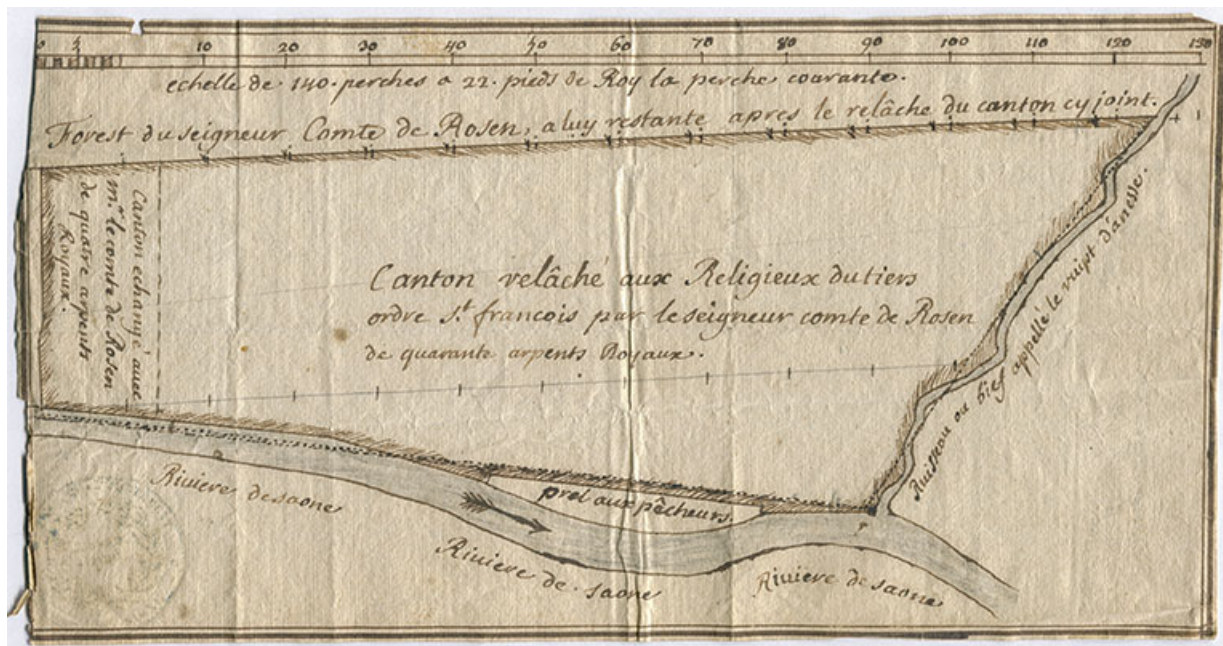 0 5 10 20 30 40 50 60 70 80 90 100 110 120 130
echelle de 140. perches a 22. pieds de Roy la perche courante.
Forest du seigneur Comte de Rosen, a luy restante apres le relâche du canton cy joint.
Canton echangé avec
mr. le comte de Rosen
de quatre arpents
Royaux.
Canton relâché aux Religieux du tiers
ordre st. francois par le seigneur comte de Rosen
de quarante arpents Royaux.
Ruisseau ou bief appellé le vuipt d'anesse.
prel aux pêcheurs.
Riviere de saone
Riviere de saone
Riviere de saone